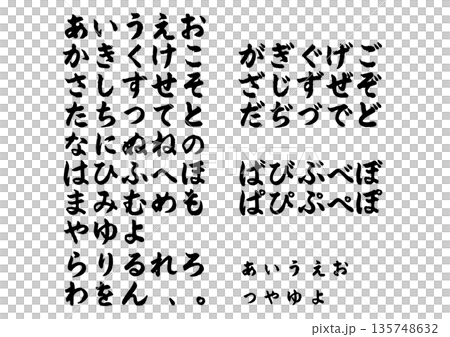 あいうえお
かきくけこ
さしすせそ
たちつてと
なにぬねの
はひふへほ
まみむめも
やゆよ
らりるれろ
わをん、。
がぎぐげご
ざじずぜぞ
だぢづでど
ばびぶべぼ
ぱぴぷぺぽ
あいうえお
つやゆよ
PIXTA
pixta.jp - 135748632